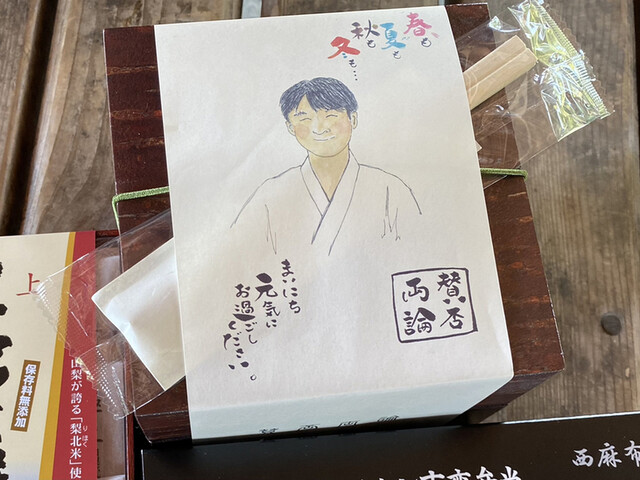 春も
夏も
秋も
冬も…
まいにち
元気に
お過ごし
ください。
賛否
両論
上
保存料無添加
山梨が誇る「梨北米」使
りほく
西麻布